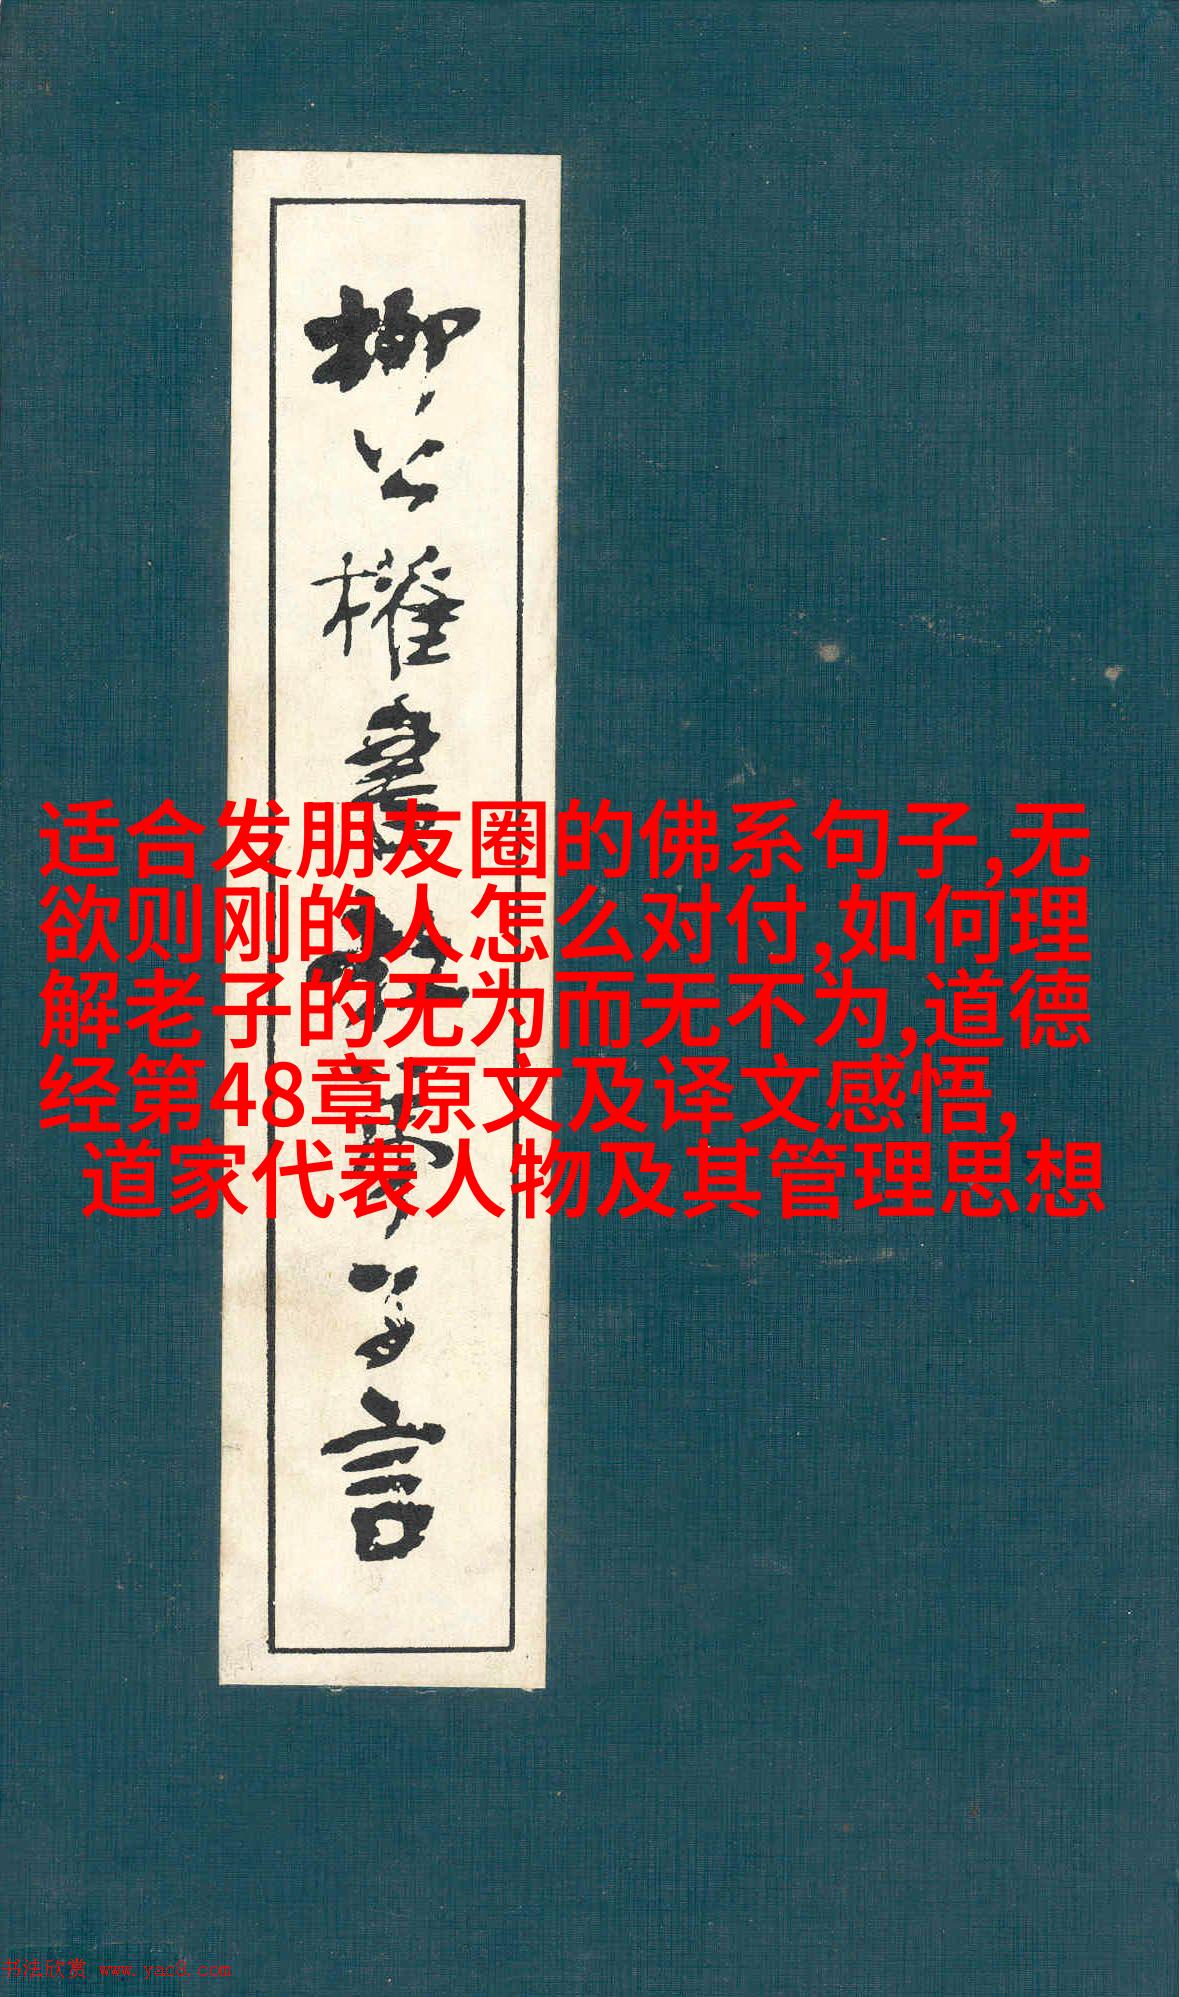 柳公權書神策軍碑
适合发朋友圈的佛系句子,无
欲则刚的人怎么对付,如何理
解老子的无为而无不为,道德
经第48章原文及译文感悟,
道家代表人物及其管理思想
书法欣赏 www.yac8.com